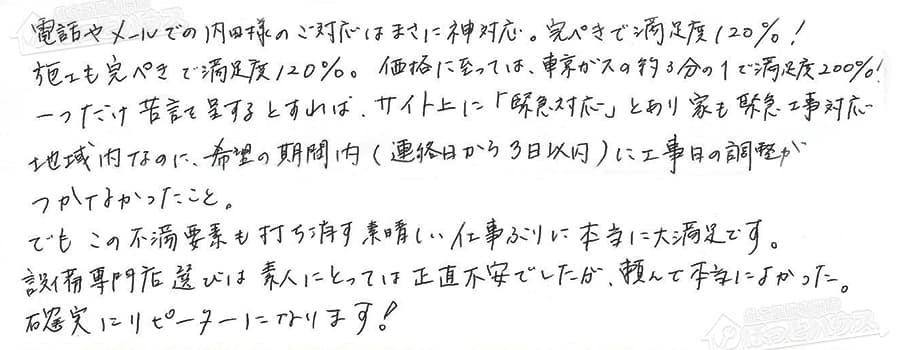 電話やメールでの内田様のご対応はまさに神対応。完ぺきで満足度120%!
施工も完ぺきで満足度120%。価格に至っては、東京ガスの約3分の1で満足度200%!
一つだけ苦言を呈するとすれば、サイト上に「緊急対応」とあり家も緊急工事対応
地域内なのに、希望の期間内(連絡日から3日以内)に工事日の調整が
つかなかったこと。
でもこの不満要素も打ち消す素晴しい仕事ぶりに本当に大満足です。
設備専門店選びは素人にとっては正直不安でしたが、頼んで本当によかった。
確実にリピーターになります!